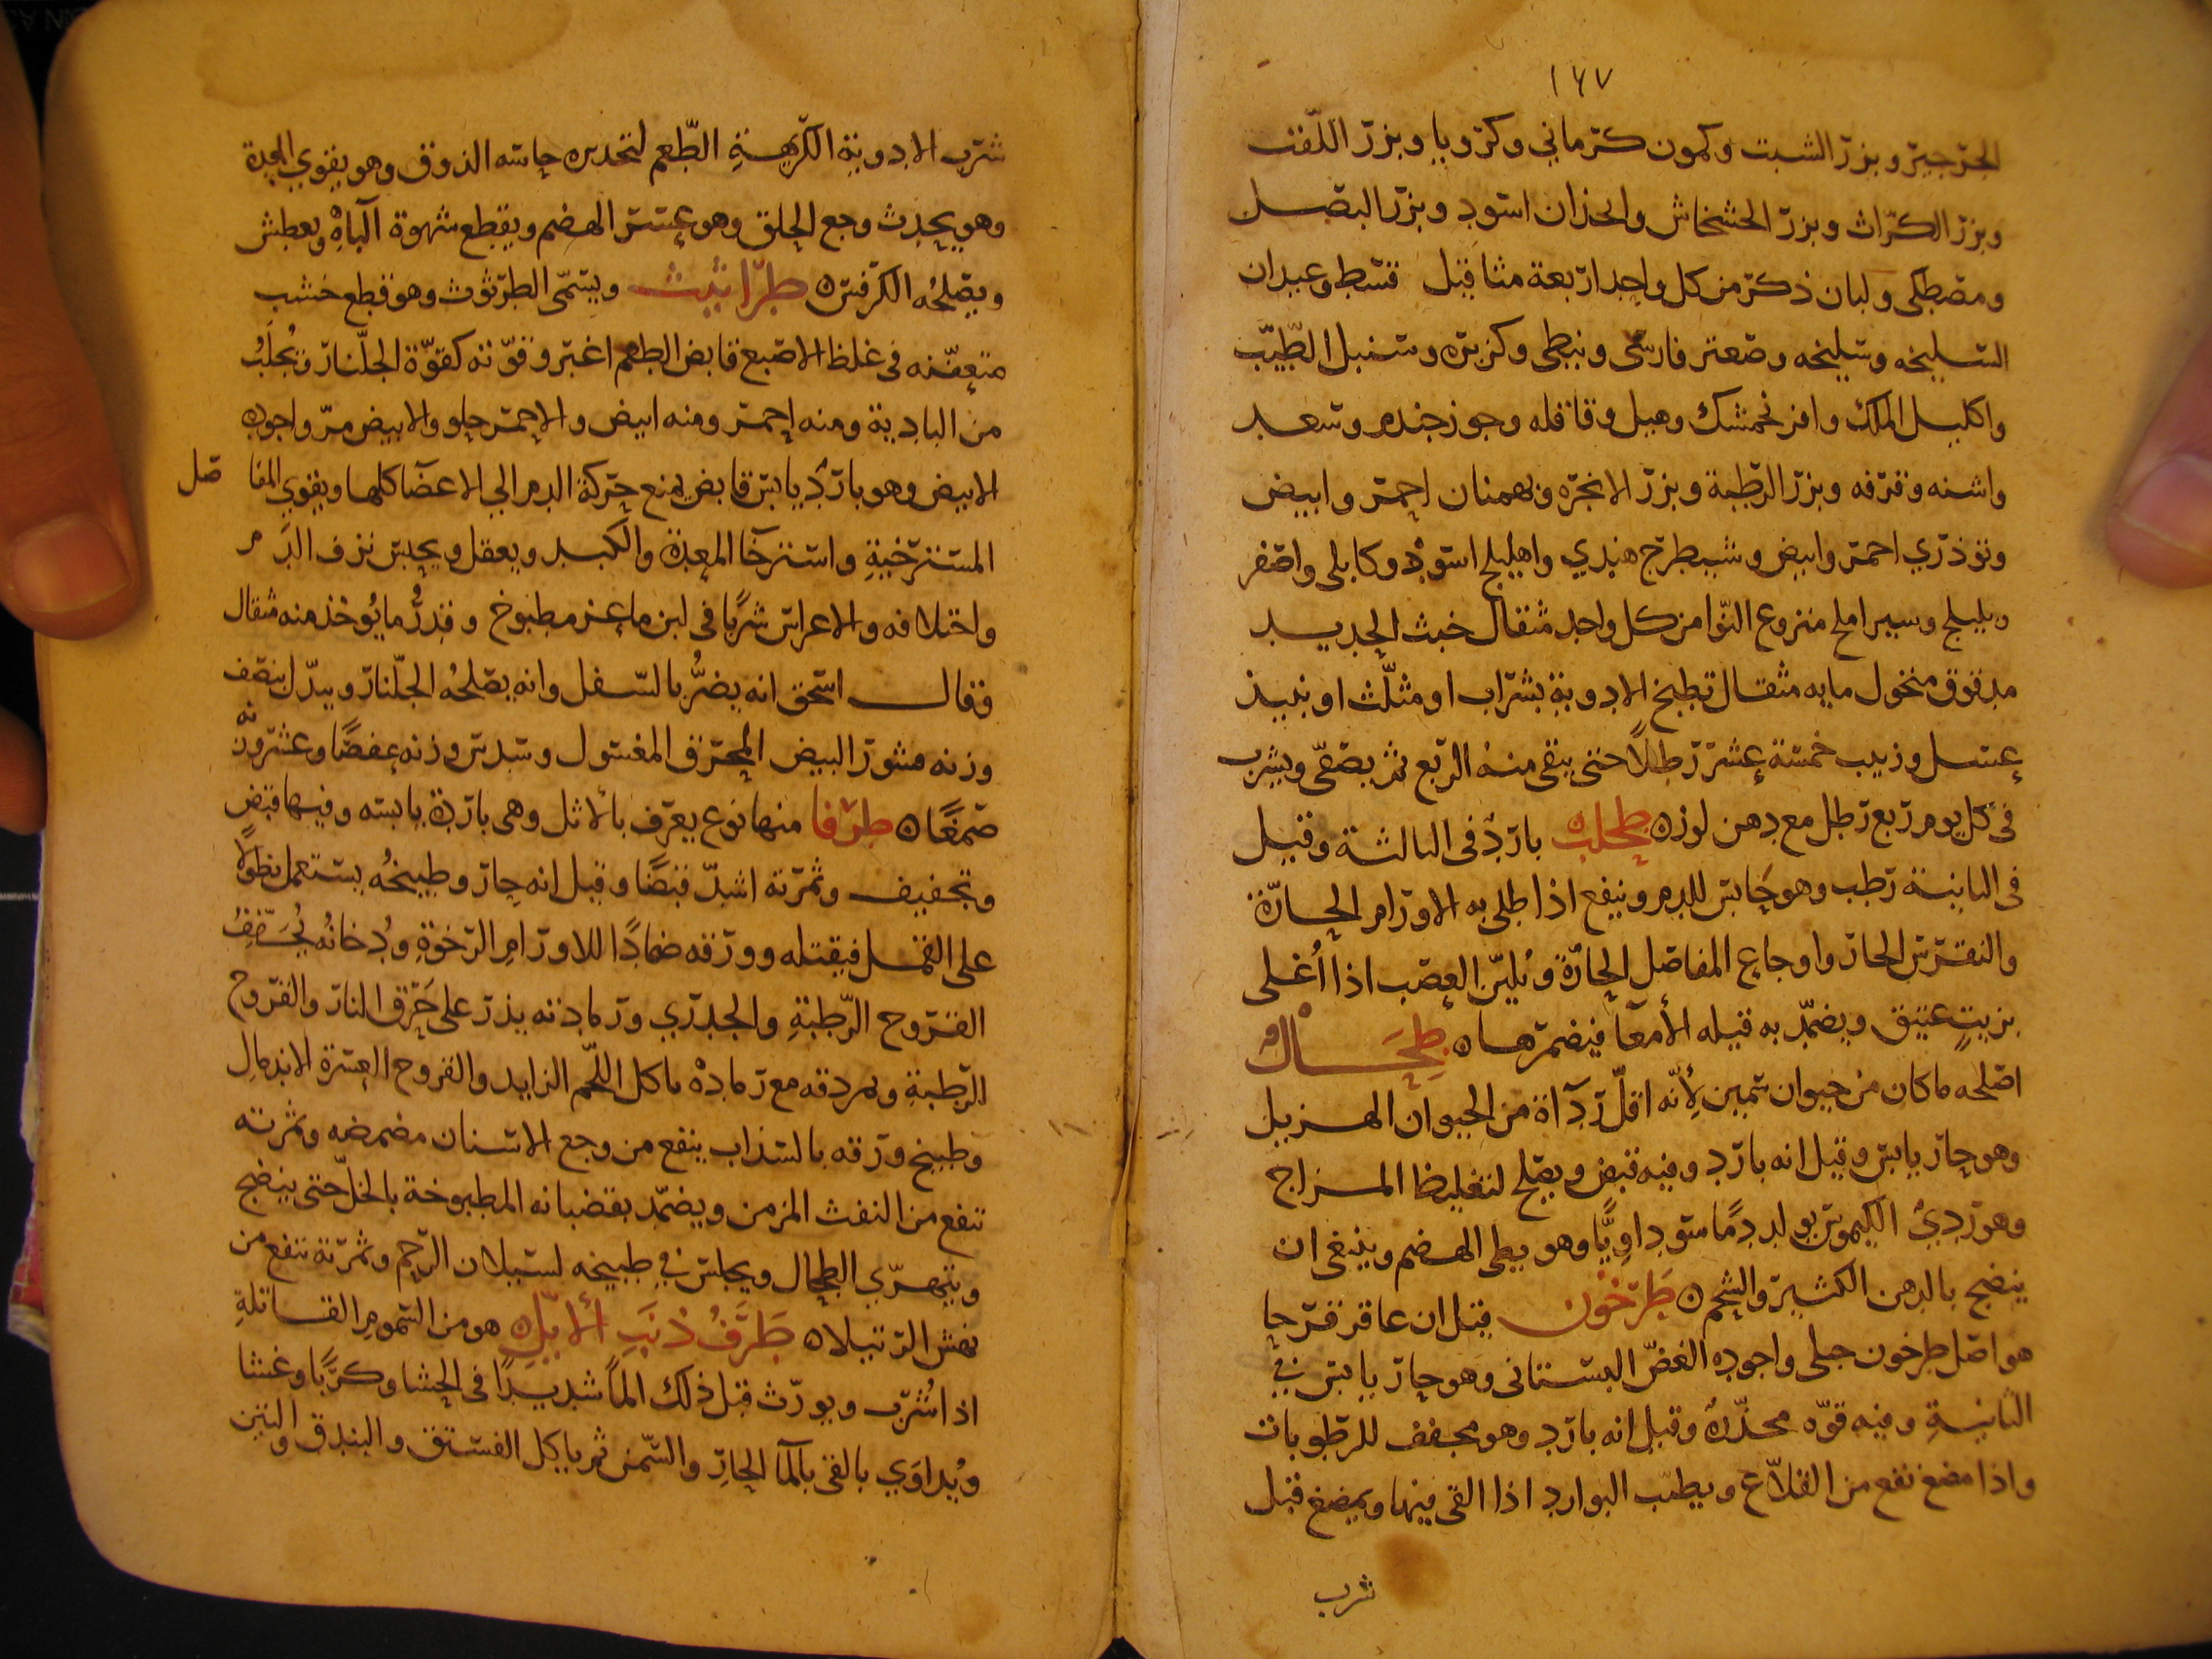 ١٦٧
الجرجير وبزر الشبت وكمون كرماني وكرويا وبزر اللفت
وبزر الكرّاث وبزر الخشخاش والحزان اسود وبزر البصل
ومصطكى ولبان ذكر من كل واحد اربعة مثاقيل قسط وعيدان
السليخه وسليخه وصعتر فارسى ونبطى وكزبره وسنبل الطّيب
واكليل الملك وافرنجمشك وهيل وقاقله وجوز جندم وسعد
واشنه وقرفه وبزر الرطبة وبزر الانجره وبهمنان احمر وابيض
وتوذري احمر وابيض وشيطرج هندي واهليلج اسود وكابلى واصفر
وبليلج وسير املج منزوع النّوا من كل واحد مثقال خبث الحديد
مدقوق منخول مايه مثقال تطبخ الادوية بشراب او مثلّث او نبيذ
عسل وزبيب خمسة عشر رطلاً حتى يبقى منه الربع ثم يصفّى ويشرب
فى كل يوم ربع رطل مع دهن لوز ه طحلب بارد فى الثالثة وقيل
فى الثانية رطب وهو حابس للدم وينفع اذا طلى به الاورام الحارّة
والنقرس الحار واوجاع المفاصل الحارّة ويُليّن العصب اذا أُغلى
بزيتٍ عتيق ويضمّد به قيله الأمعآ فيضمرها ه طِحَالٌ
اصلحه ما كان من حيوان سمين لأنّه اقلّ ردآاة من الحيوان الهزيل
وهو حار يابس وقيل انه بارد وفيه قبض ويصلح لتغليظ المزاج
وهو رديّ الكيموس يولد دمًا سوداويًّا وهو بطى الهضم وينبغى ان
ينضج بالدهن الكثير والشحم ه طَرخون قيل ان عاقر قرحا
هو اصل طرخون جبلى واجوده الغضّ البستانى وهو حار يابس في
الثانيةِ وفيه قوّه مخدّرة وقيل انه بارد وهو مجفف للرطوبات
واذا مضغ نفع من القلاّع ويطيّب البوارد اذا القى فيها ويمضغ قبل
شرب
شرب الادوية الكريهةِ الطّعم لتخديره حاسه الذوق وهو يقوي المعدة
وهو يحدث وجع الحلق وهو عسر الهضم ويقطع شهوة الباهْ ويعطش
ويصلحُه الكرفس ه طرّاثيث ويسمّى الطرثوث وهو قطع خشب
متعفّنه فى غلظ الاصبع قابض الطعم اغبر وقوّته كقوّة الجلّنار وتُجلَبُ
من البادية ومنه احمر ومنه ابيض والاحمر حلو والابيض مرّ واجوده
الابيض وهو باردٌ يابس قابض يمنع حركة الدم الى الاعضآ كلها ويقوي المفا صل
المسترخيةِ واسترخآ المعدة والكبد ويعقل ويحبس نزف الدَم
واختلافه والاعراس شربًا فى لبن ماعز مطبوخ وقدرُ ما يُوخذ منه مثقال
وقال اسحق انه يضرُّ بالسّفل وانه يصلحُه الجلّنار ويبدّل بنصف
وزنه قشور البيض المحترق المغسول وسدس وزنه عفصًا وعشر وزنه
صمغًا ه طرفا منها نوع يعرف بالأثل وهى باردة يابسه وفيها قبض
وتجفيف وثمرته اشدّ قبضًا وقيل انه حار وطبيخُه يستعمل نطولاً
على القمل فيقتله وورقه ضمادًا للاورامِ الرخوةِ ودُخانُه يُجَفّفُ
القروح الرّطبةِ والجدري ورماد ته يذر على حَرَق النار والقروح
الرّطبةِ ومع رماده ماكل اللّحم الزايد والقروح العسرة الاندمال
وطبيخ ورقه بالشراب ينفع من وجع الاسنان مضمضه وثمرته
تنفع من النفث المزمن ويضمّد بقضبانه المطبوخة بالخلّ حتى ينضج
ويتهرّي الطحال ويجلس في طبيخه لسيلان الرّحم وثمرته تنفع من
نهش الرتيلا ه طَرَفُ ذنَبِ الأيّلِ ه هو من السمومِ القاتلةِ
اذا شُرب ويورّث قبل ذلك المًا شديدًا فى الحشا وكربًا وغشيا
ويُداوَي بالقى بالمآ الحارّ والسّمن ثم ياكل الفستق والبندق والتين